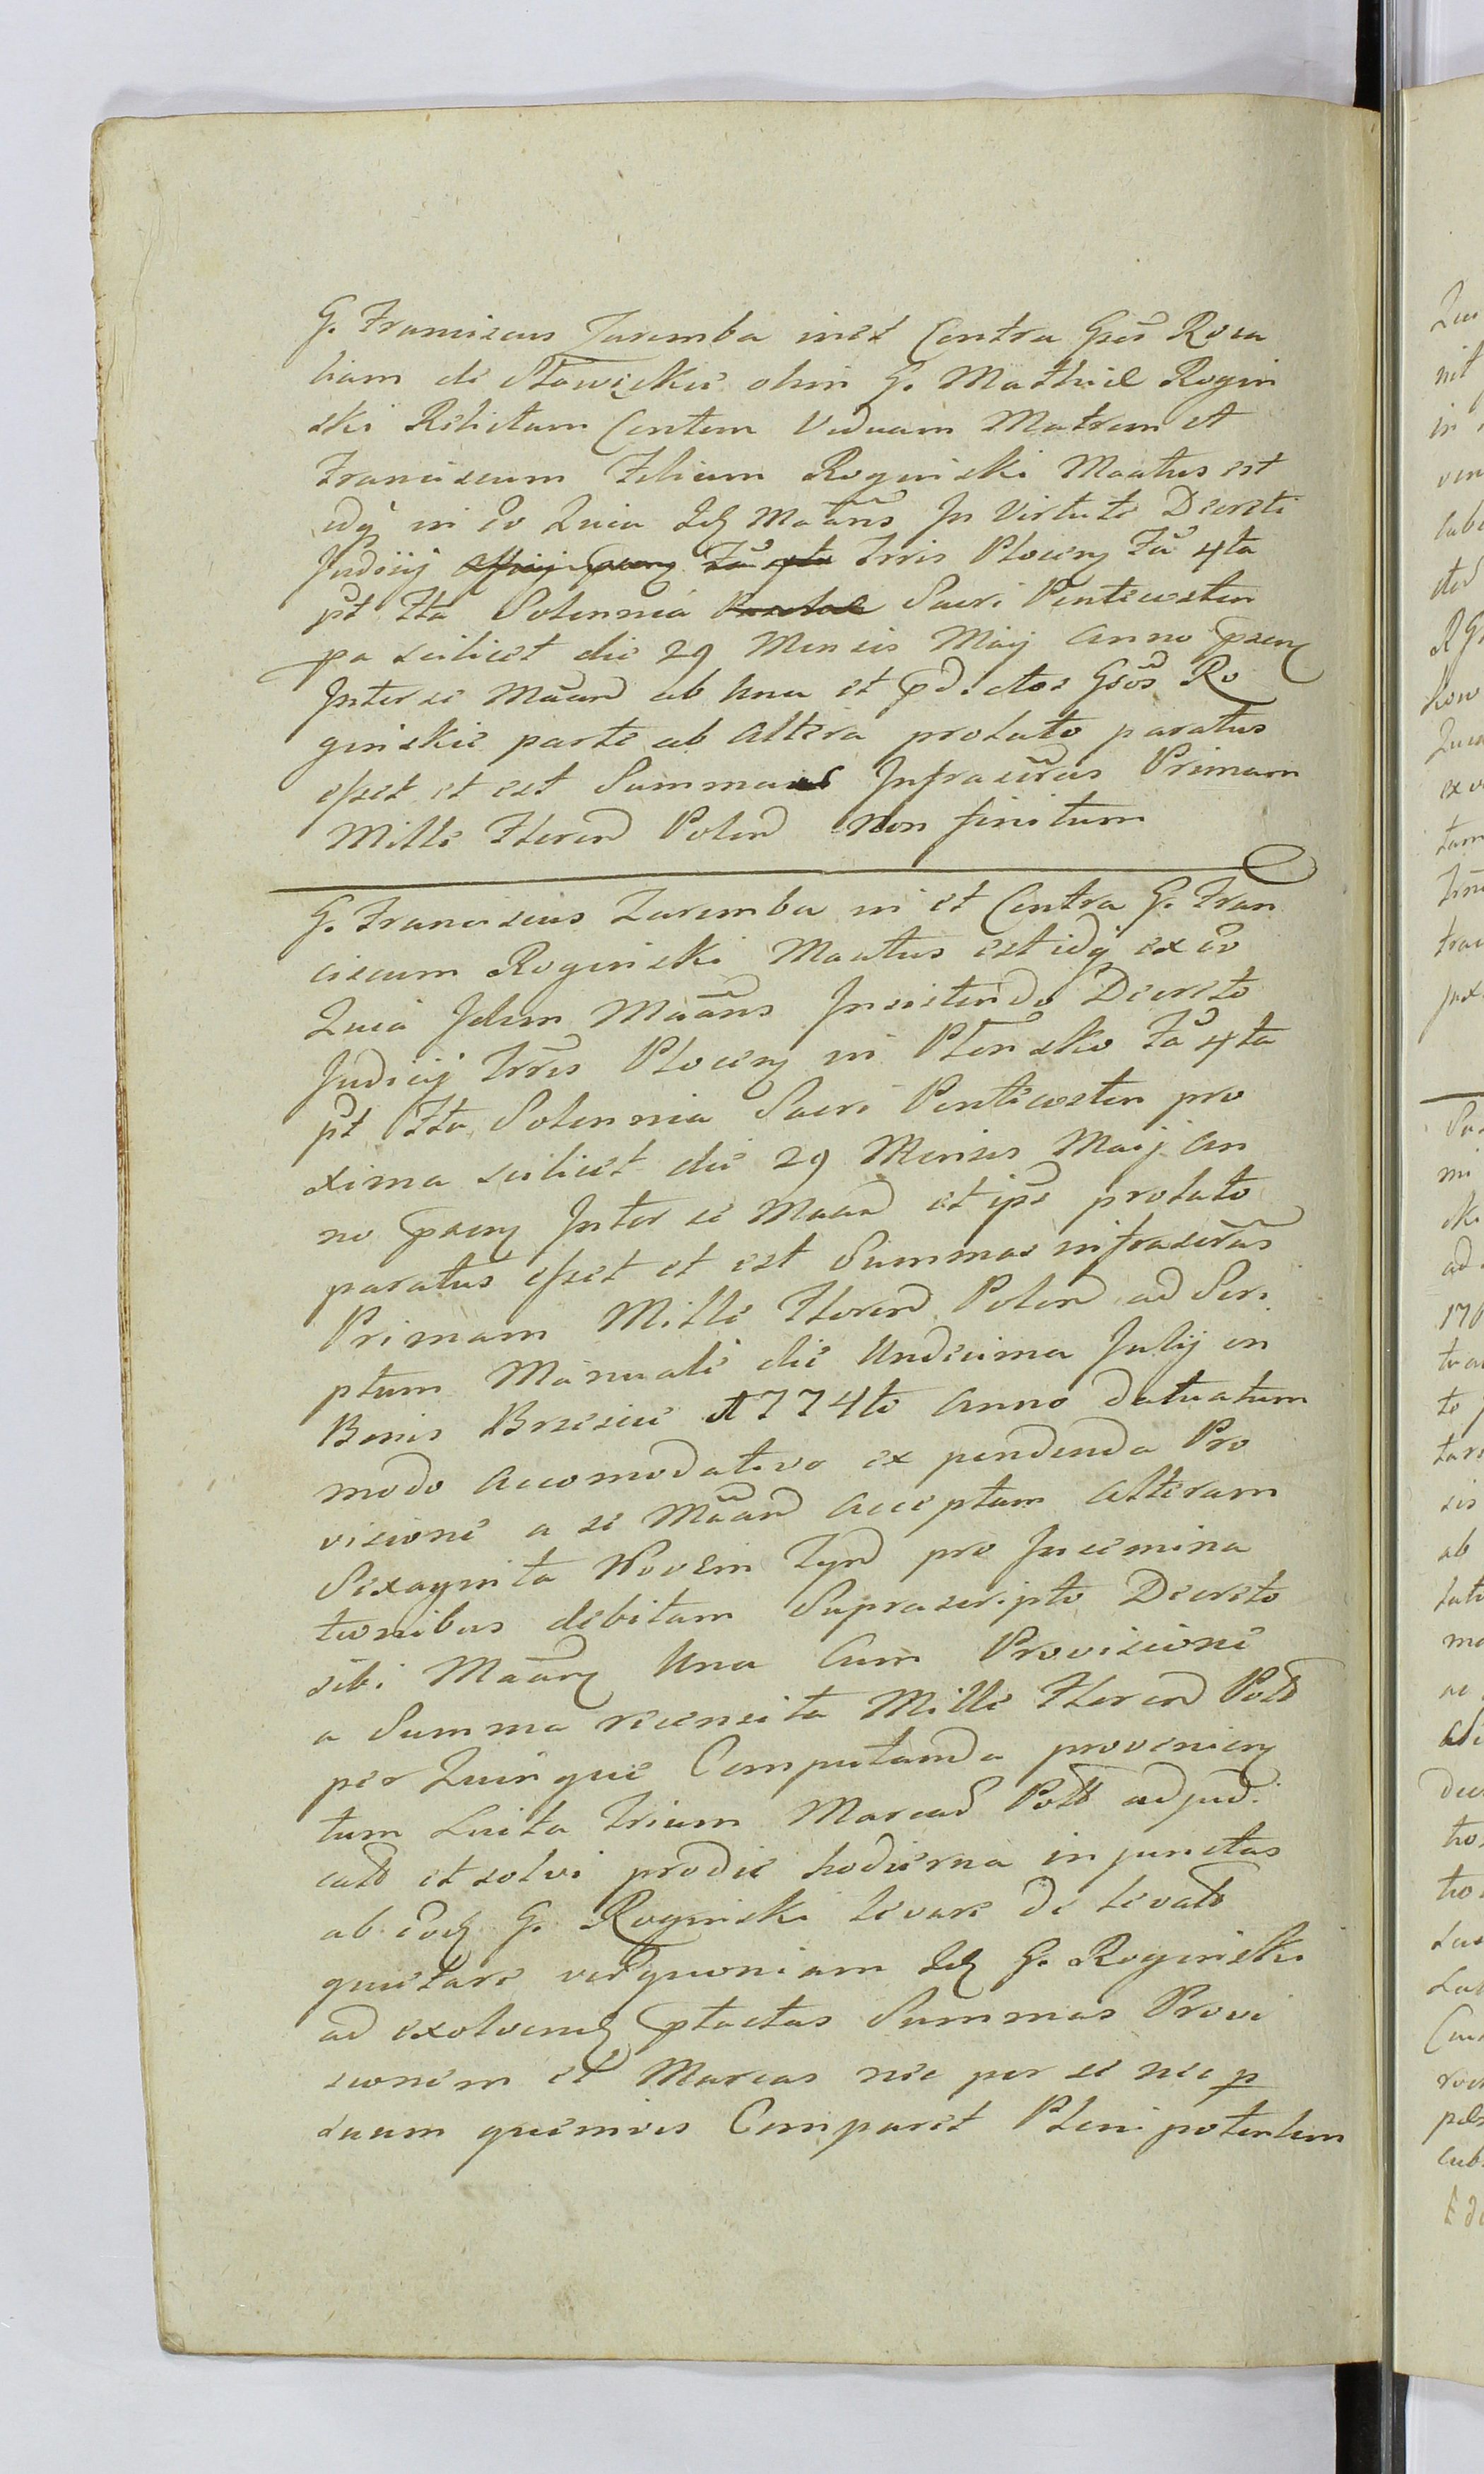 G. Franciscus Zaremba in et Contra Gsos Rosa
liam de Sławęckie olim G. Mathiae Rogin
ski Relictam Contem Viduam Matrem et
Franciscum Filium Roginski Maatus est
idq in eo Quia Idq Maans In Virtute Decreti
Judicij Trris Plocen Fa 4ta
pt Fta Solennia Sacri Pentecosten
pa scilicet die 29 Mensis Maij Anno praen
Inter se Maan ab una et pdictos Gsos Ro
ginskie parte ab altera prolato paratus
esset et est Summas Infrascras Primam
Mille Floren Polon Non finitum
G. Franciscus Zaremba in et Contra G. Fran
ciscum Roginski Maatus est idq ex eo
Quia Idem Maans Insistendo Decreto
Judicij Trris Plocen in Płonsko Fa 4ta
pt Fta Solennia Sacri Pentecosten pro
xima scilicet die 29 Mensis Maij An
no praen Inter se Maan et ipse prolato
paratus esset et est Summas infrascras
Primam Mille Floren Polon ad Scri
ptum Manuale die Undecima Julij in
Bonis Brzescie 1774to Anno datuatum
modo accomodativo ex pendenda Pro
visione a se Maan acceptam alteram
Sexaginta Novem Tyn pro Incemina
tionibus debitam Suprascripto Decreto
sibi Maan Una Cum Provisione
a Summa recensita Mille Floren Poll
per Quinque Computanda provenien
tum Luita trium Marcas Poll adjudi
catt et solvi prodie hodierna injunctas
ab eod G. Roginski levare de levatt
quietare verquoniam Idq G. Roginski
ad exolvend ptactas Summas Provi
sionem et Marcas nec per se nec p
suum quemvis Comparet Plenipotentem